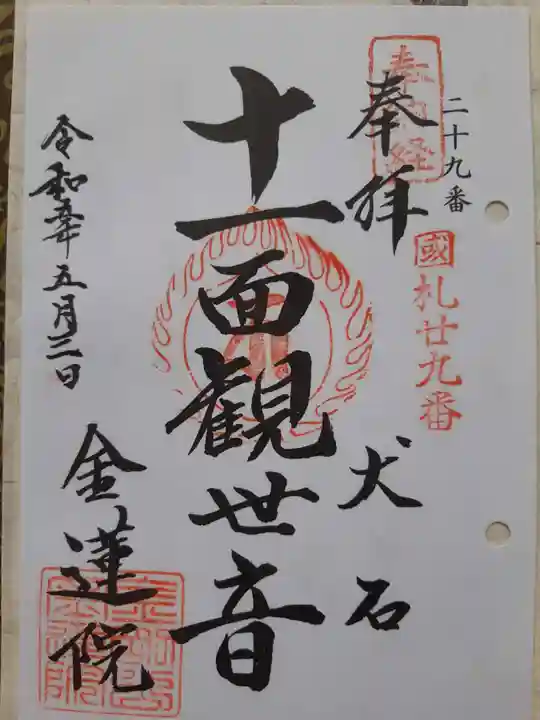 二十九番
奉納経
奉拝
國札廿九番
犬石
十一面観世音
令和
年五月三日
金蓮院